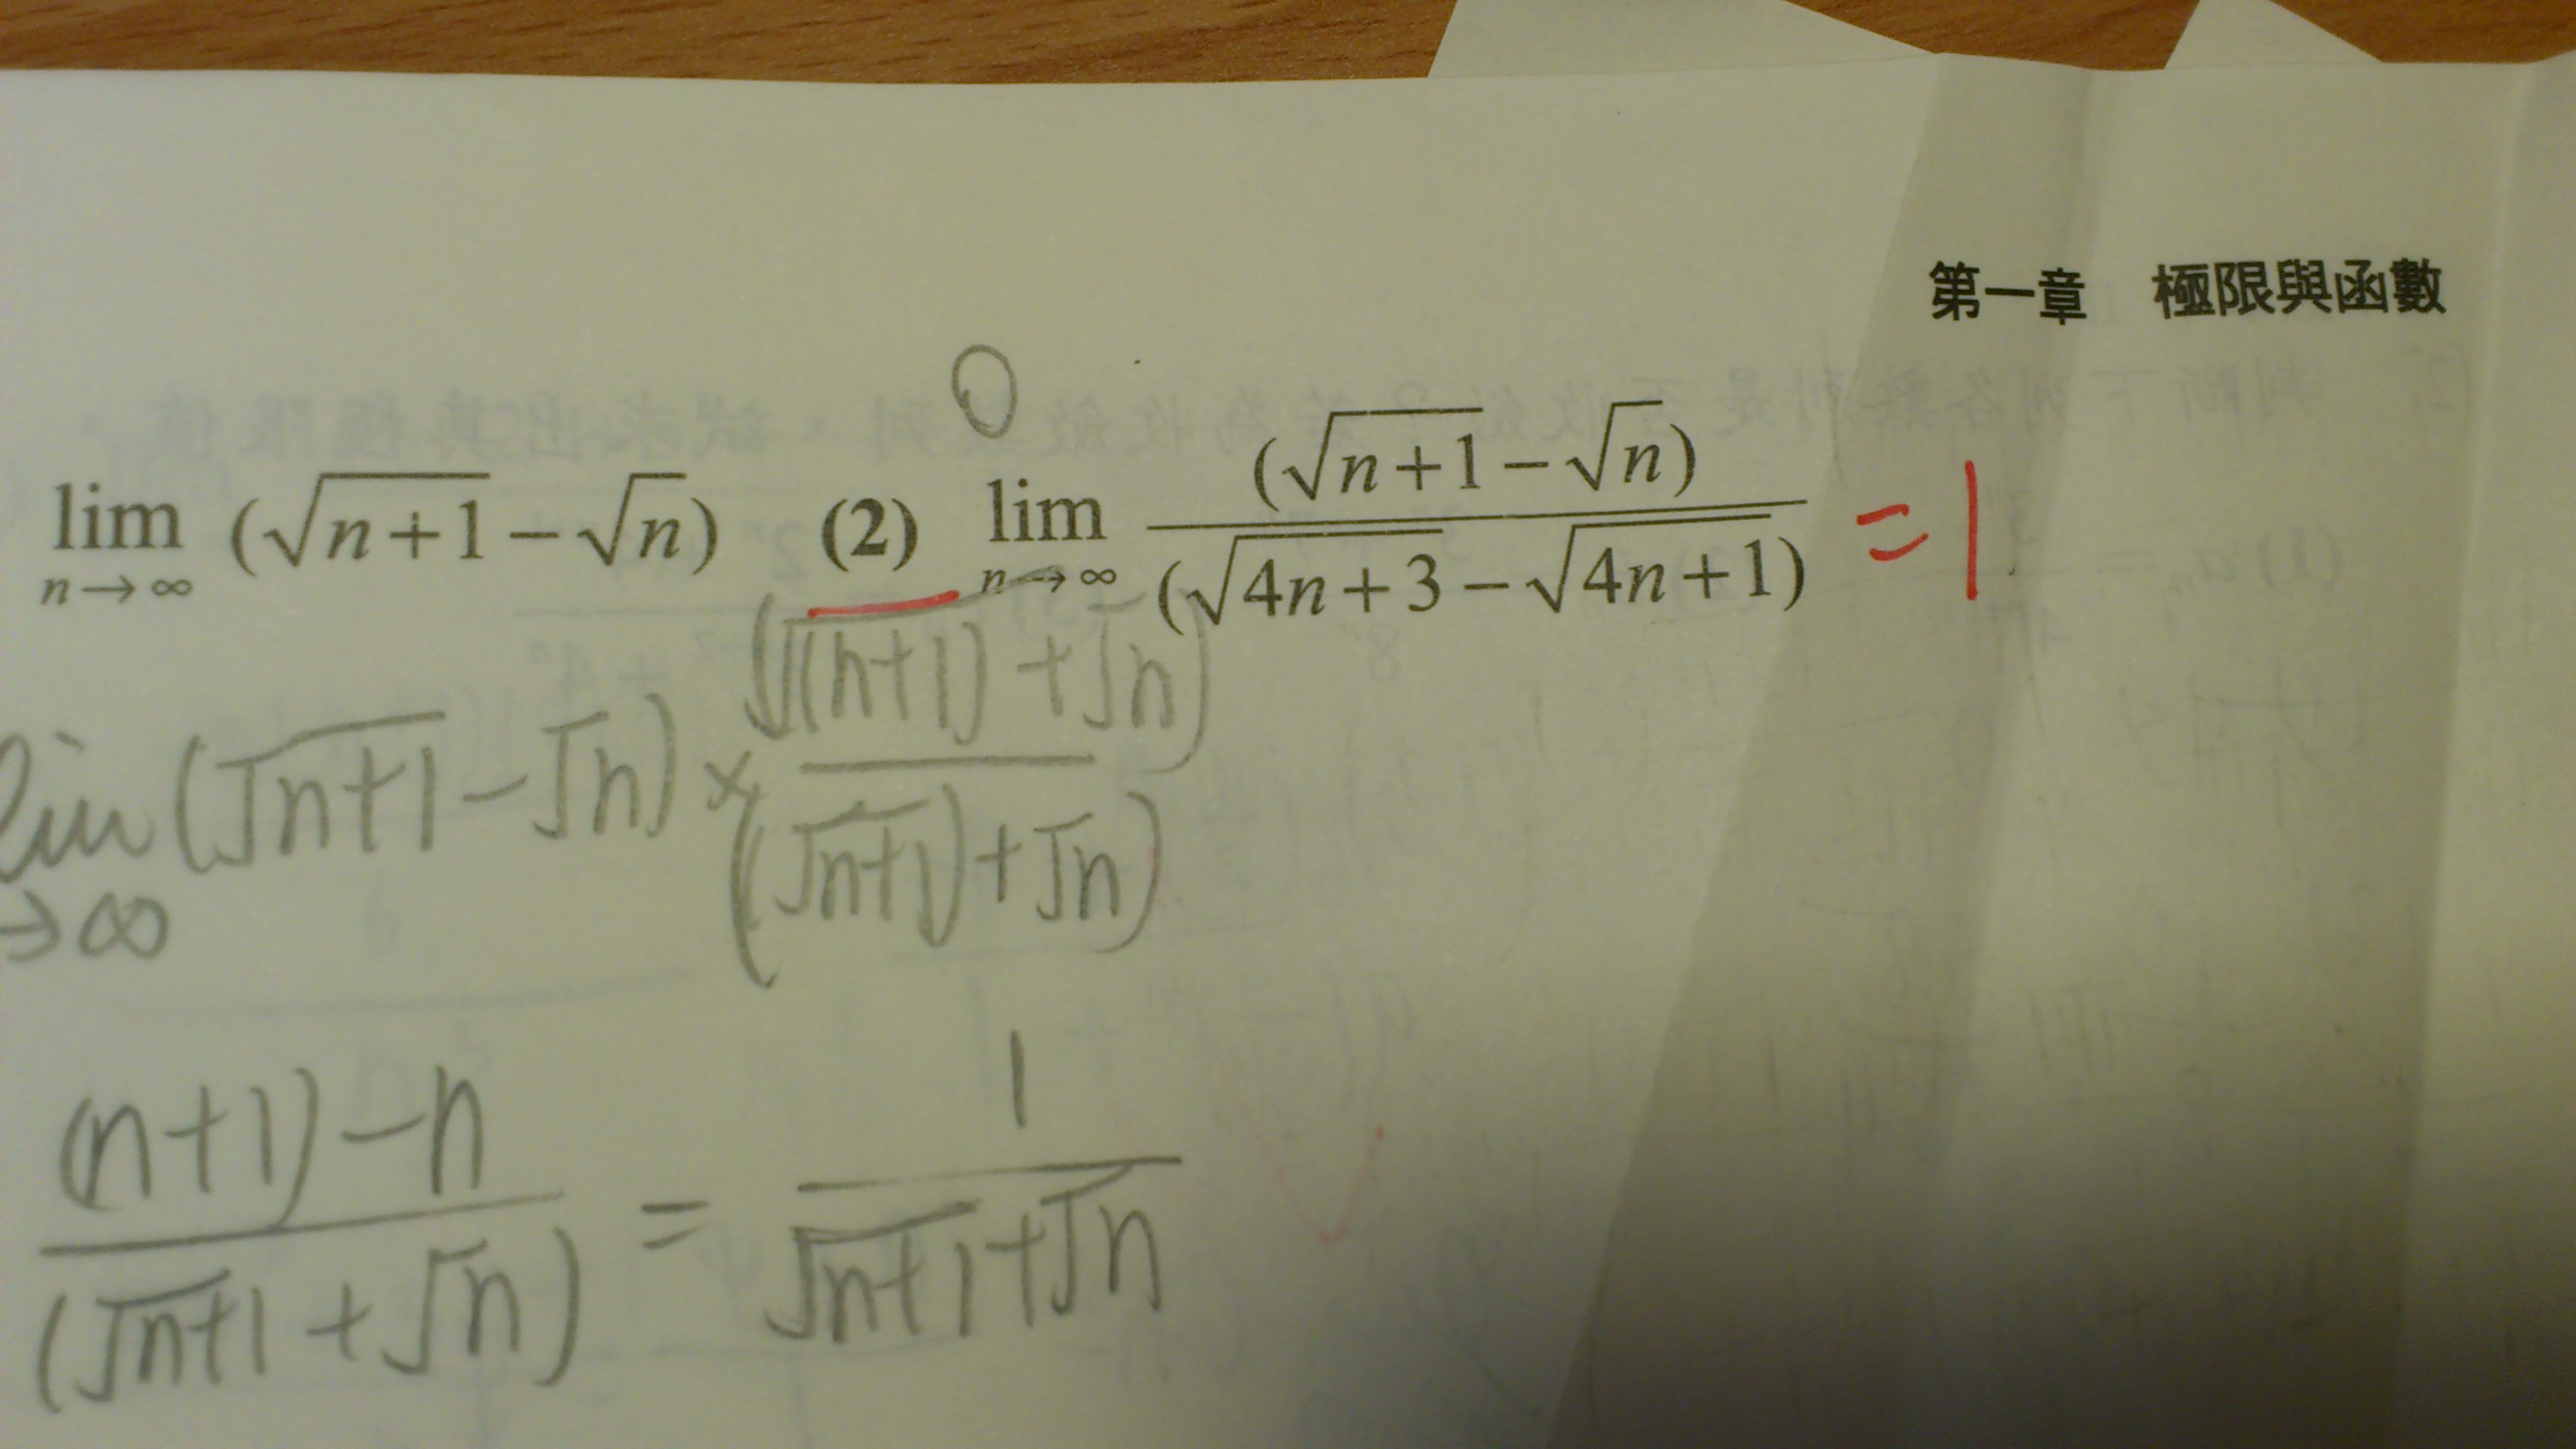 第一章 極限與函數
0
lim n→∞ (√(n+1) − √n) (2) lim n→∞ (√(n+1) − √n) / (√(4n+3) − √(4n+1)) = 1
lim →∞ (√(n+1) − √n) × (√(n+1) + √n) / (√(n+1) + √n)
((n+1) − n) / (√(n+1) + √n) = 1 / (√(n+1) + √n)